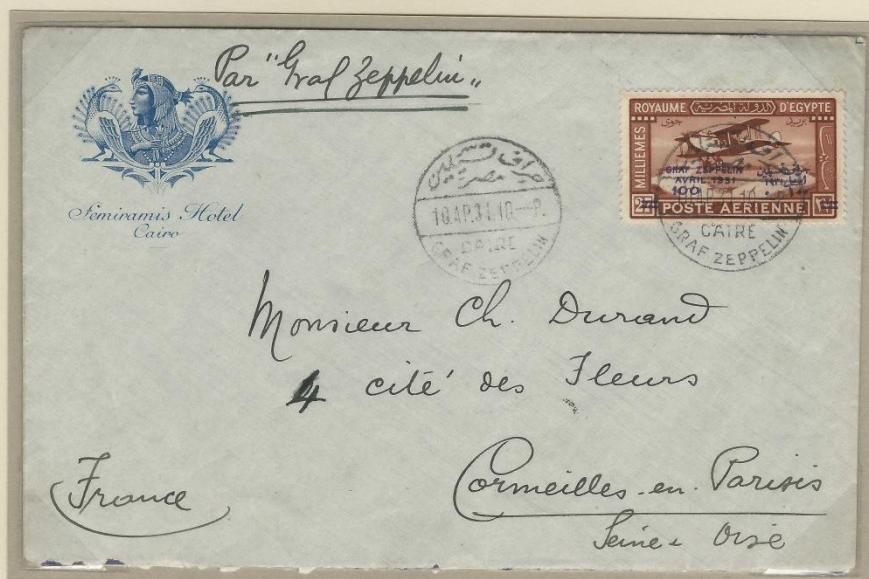 Par "Graf Zeppelin"
Semiramis Hotel
Cairo
جراف تسبلين
مصر
10 AP.31.10--P.
CAIRE
GRAF ZEPPELIN
ROYAUME الدولة المصرية D'EGYPTE
MILLIEMES
جوى بريد
GRAF ZEPPELIN
AVRIL 1931
100
27 POSTE AERIENNE
CAIRE
GRAF ZEPPELIN
Monsieur Ch. Durand
4 cité des Fleurs
Cormeilles-en-Parisis
Seine & Oise
France